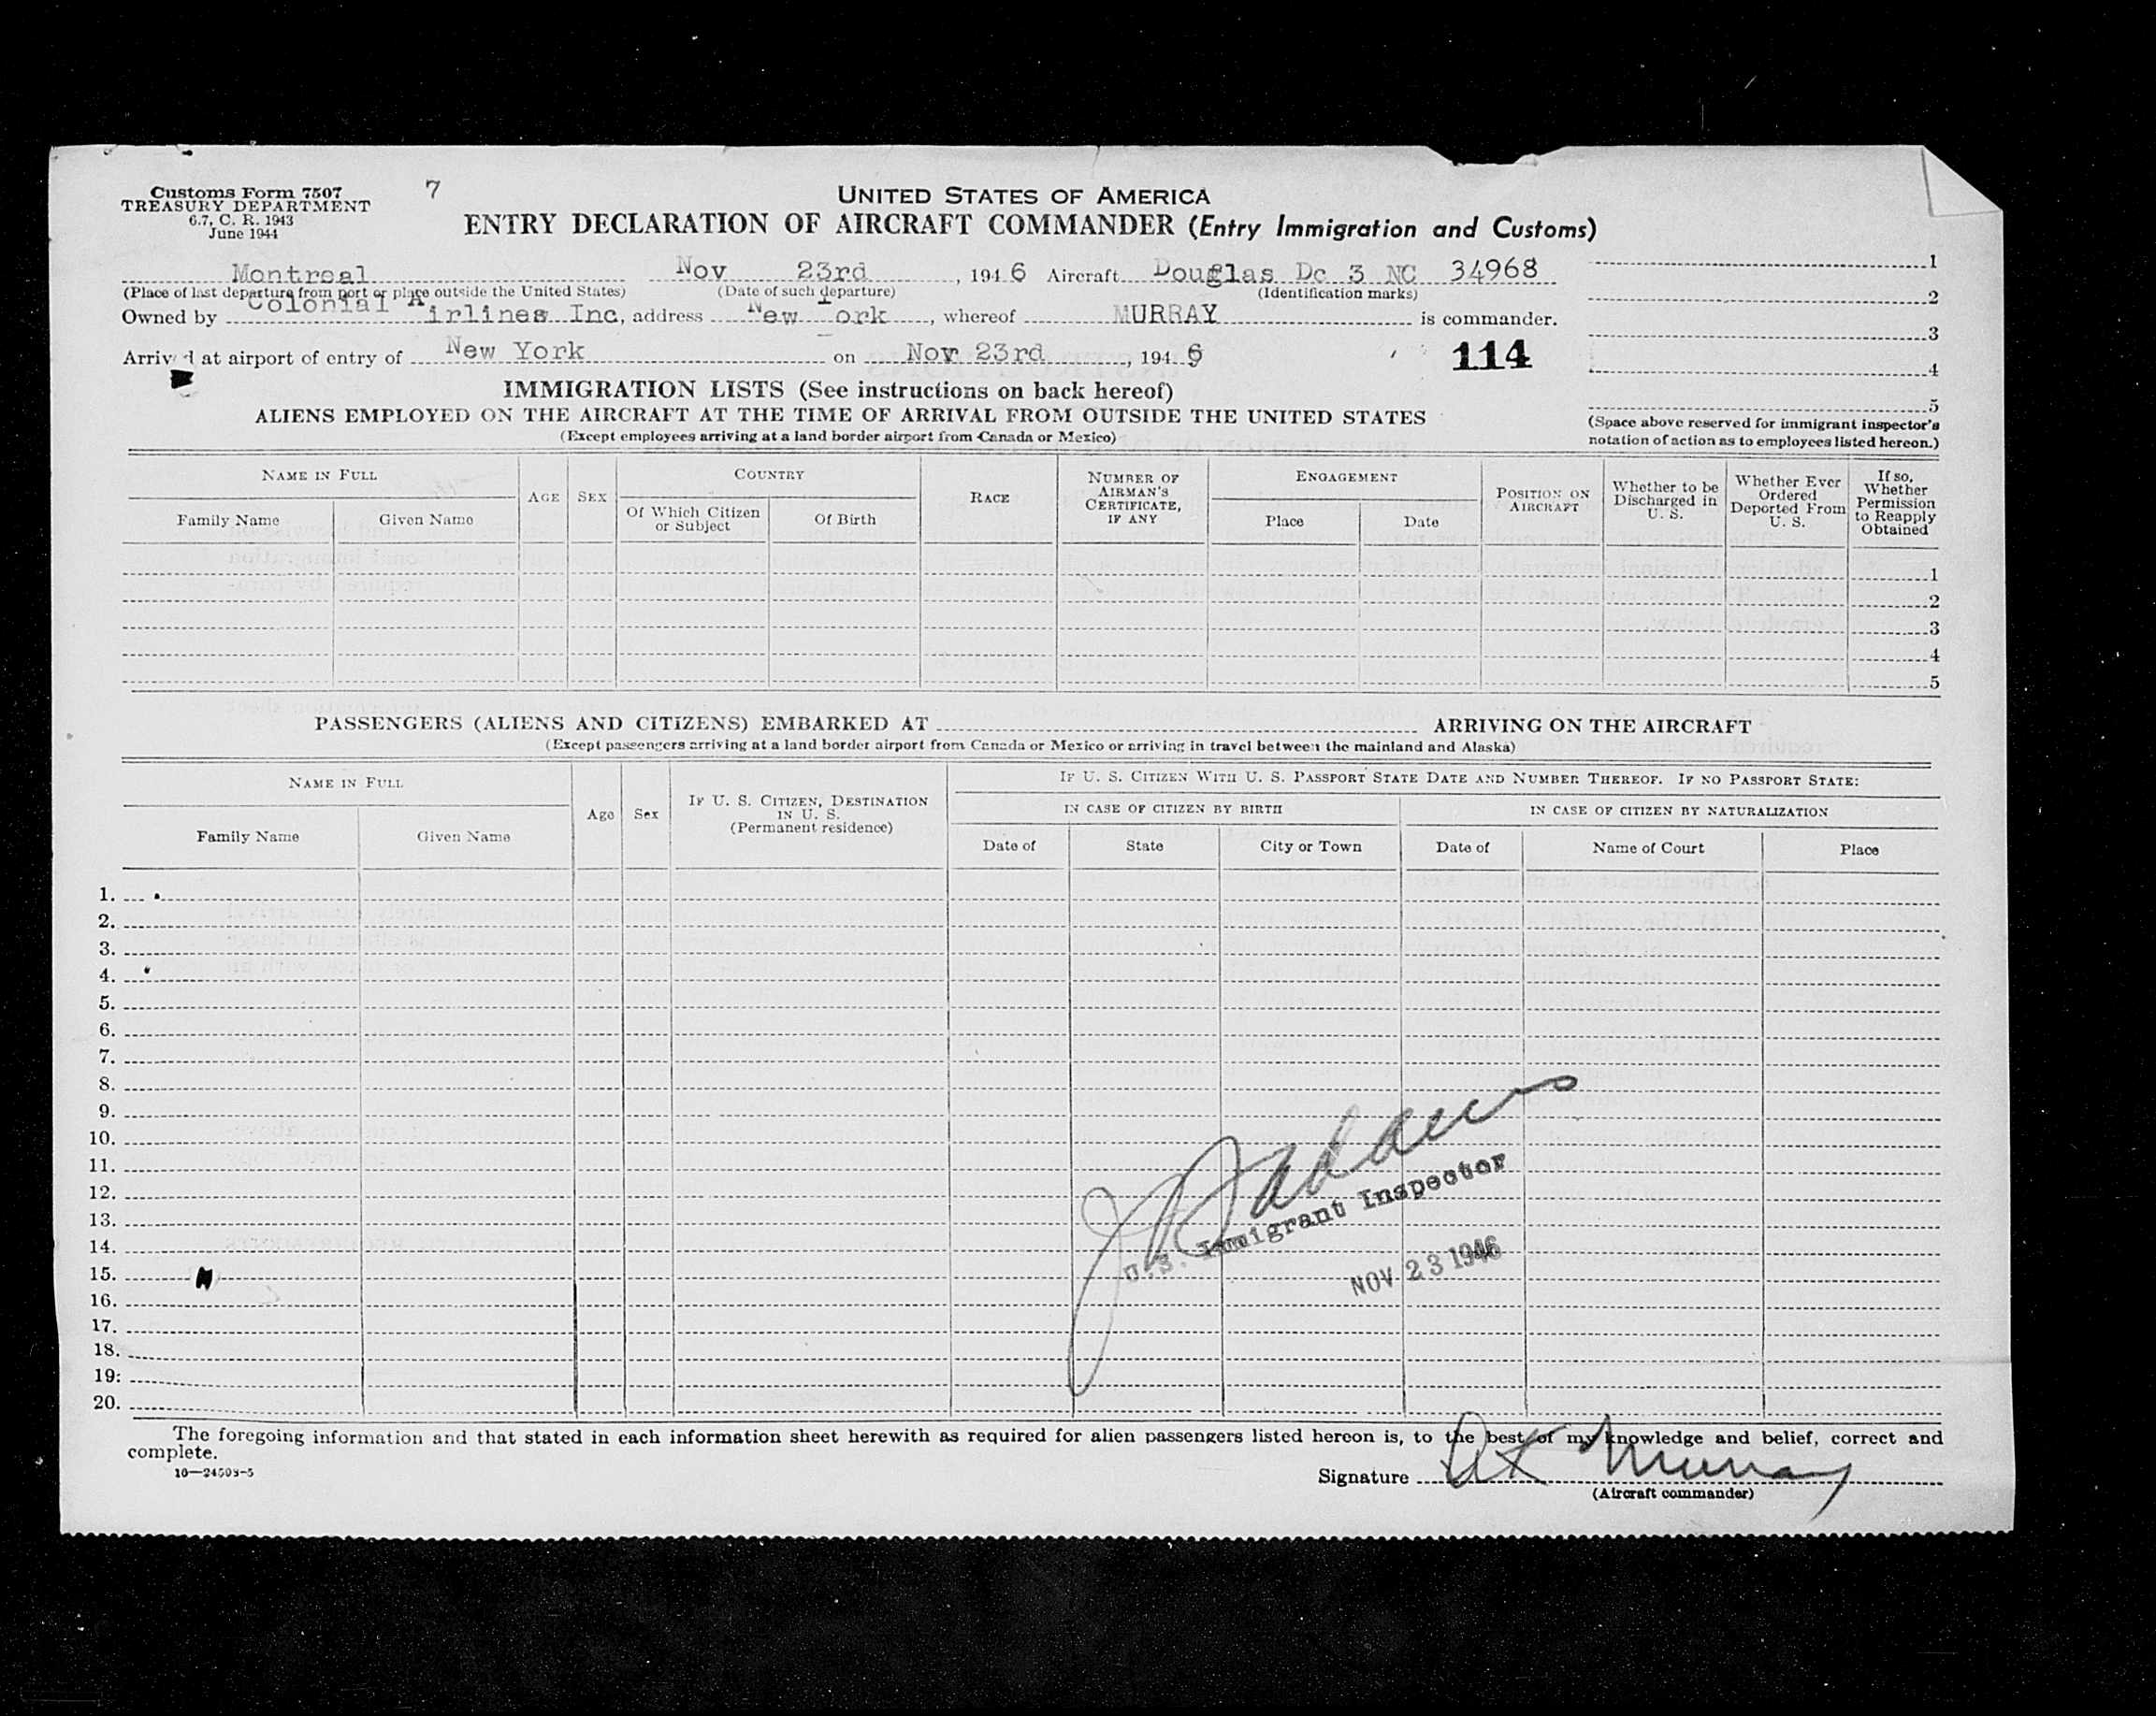 Customs Form 7507
TREASURY DEPARTMENT
6.7, C. R. 1943
June 1944
7
UNITED STATES OF AMERICA
ENTRY DECLARATION OF AIRCRAFT COMMANDER (Entry Immigration and Customs)
Montreal Nov 23rd, 1946 Aircraft Douglas Dc 3 NC 34968
(Place of last departure from port or place outside the United States) (Date of such departure) (Identification marks)
Owned by Colonial Airlines Inc, address New York, whereof MURRAY is commander.
Arrived at airport of entry of New York on Nov 23rd, 1946
114
1
2
3
4
5
(Space above reserved for immigrant inspector's
notation of action as to employees listed hereon.)
IMMIGRATION LISTS (See instructions on back hereof)
ALIENS EMPLOYED ON THE AIRCRAFT AT THE TIME OF ARRIVAL FROM OUTSIDE THE UNITED STATES
(Except employees arriving at a land border airport from Canada or Mexico)
NAME IN FULL
Family Name
Given Name
AGE
SEX
COUNTRY
Of Which Citizen
or Subject
Of Birth
RACE
NUMBER OF
AIRMAN'S
CERTIFICATE,
IF ANY
ENGAGEMENT
Place
Date
POSITION ON
AIRCRAFT
Whether to be
Discharged in
U. S.
Whether Ever
Ordered
Deported From
U. S.
If so,
Whether
Permission
to Reapply
Obtained
1
2
3
4
5
PASSENGERS (ALIENS AND CITIZENS) EMBARKED AT ARRIVING ON THE AIRCRAFT
(Except passengers arriving at a land border airport from Canada or Mexico or arriving in travel between the mainland and Alaska)
NAME IN FULL
Family Name
Given Name
Age
Sex
IF U. S. CITIZEN, DESTINATION
IN U. S.
(Permanent residence)
IF U. S. CITIZEN WITH U. S. PASSPORT STATE DATE AND NUMBER THEREOF. IF NO PASSPORT STATE:
IN CASE OF CITIZEN BY BIRTH
IN CASE OF CITIZEN BY NATURALIZATION
Date of
State
City or Town
Date of
Name of Court
Place
1.
2.
3.
4.
5.
6.
7.
8.
9.
10.
11.
12.
13.
14.
15.
16.
17.
18.
19.
20.
U.S. Immigrant Inspector
NOV 23 1946
The foregoing information and that stated in each information sheet herewith as required for alien passengers listed hereon is, to the best of my knowledge and belief, correct and
complete.
16—24503-5
Signature Murray
(Aircraft commander)